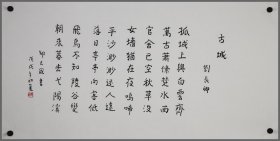 古城
劉長卿
孤城上與白雲齊
萬古蕭條楚水西
官舍已空秋草沒
女墻猶在夜烏啼
平沙渺渺迷人遠
落日亭亭向客低
飛鳥不知陵谷變
朝來暮去弋陽溪